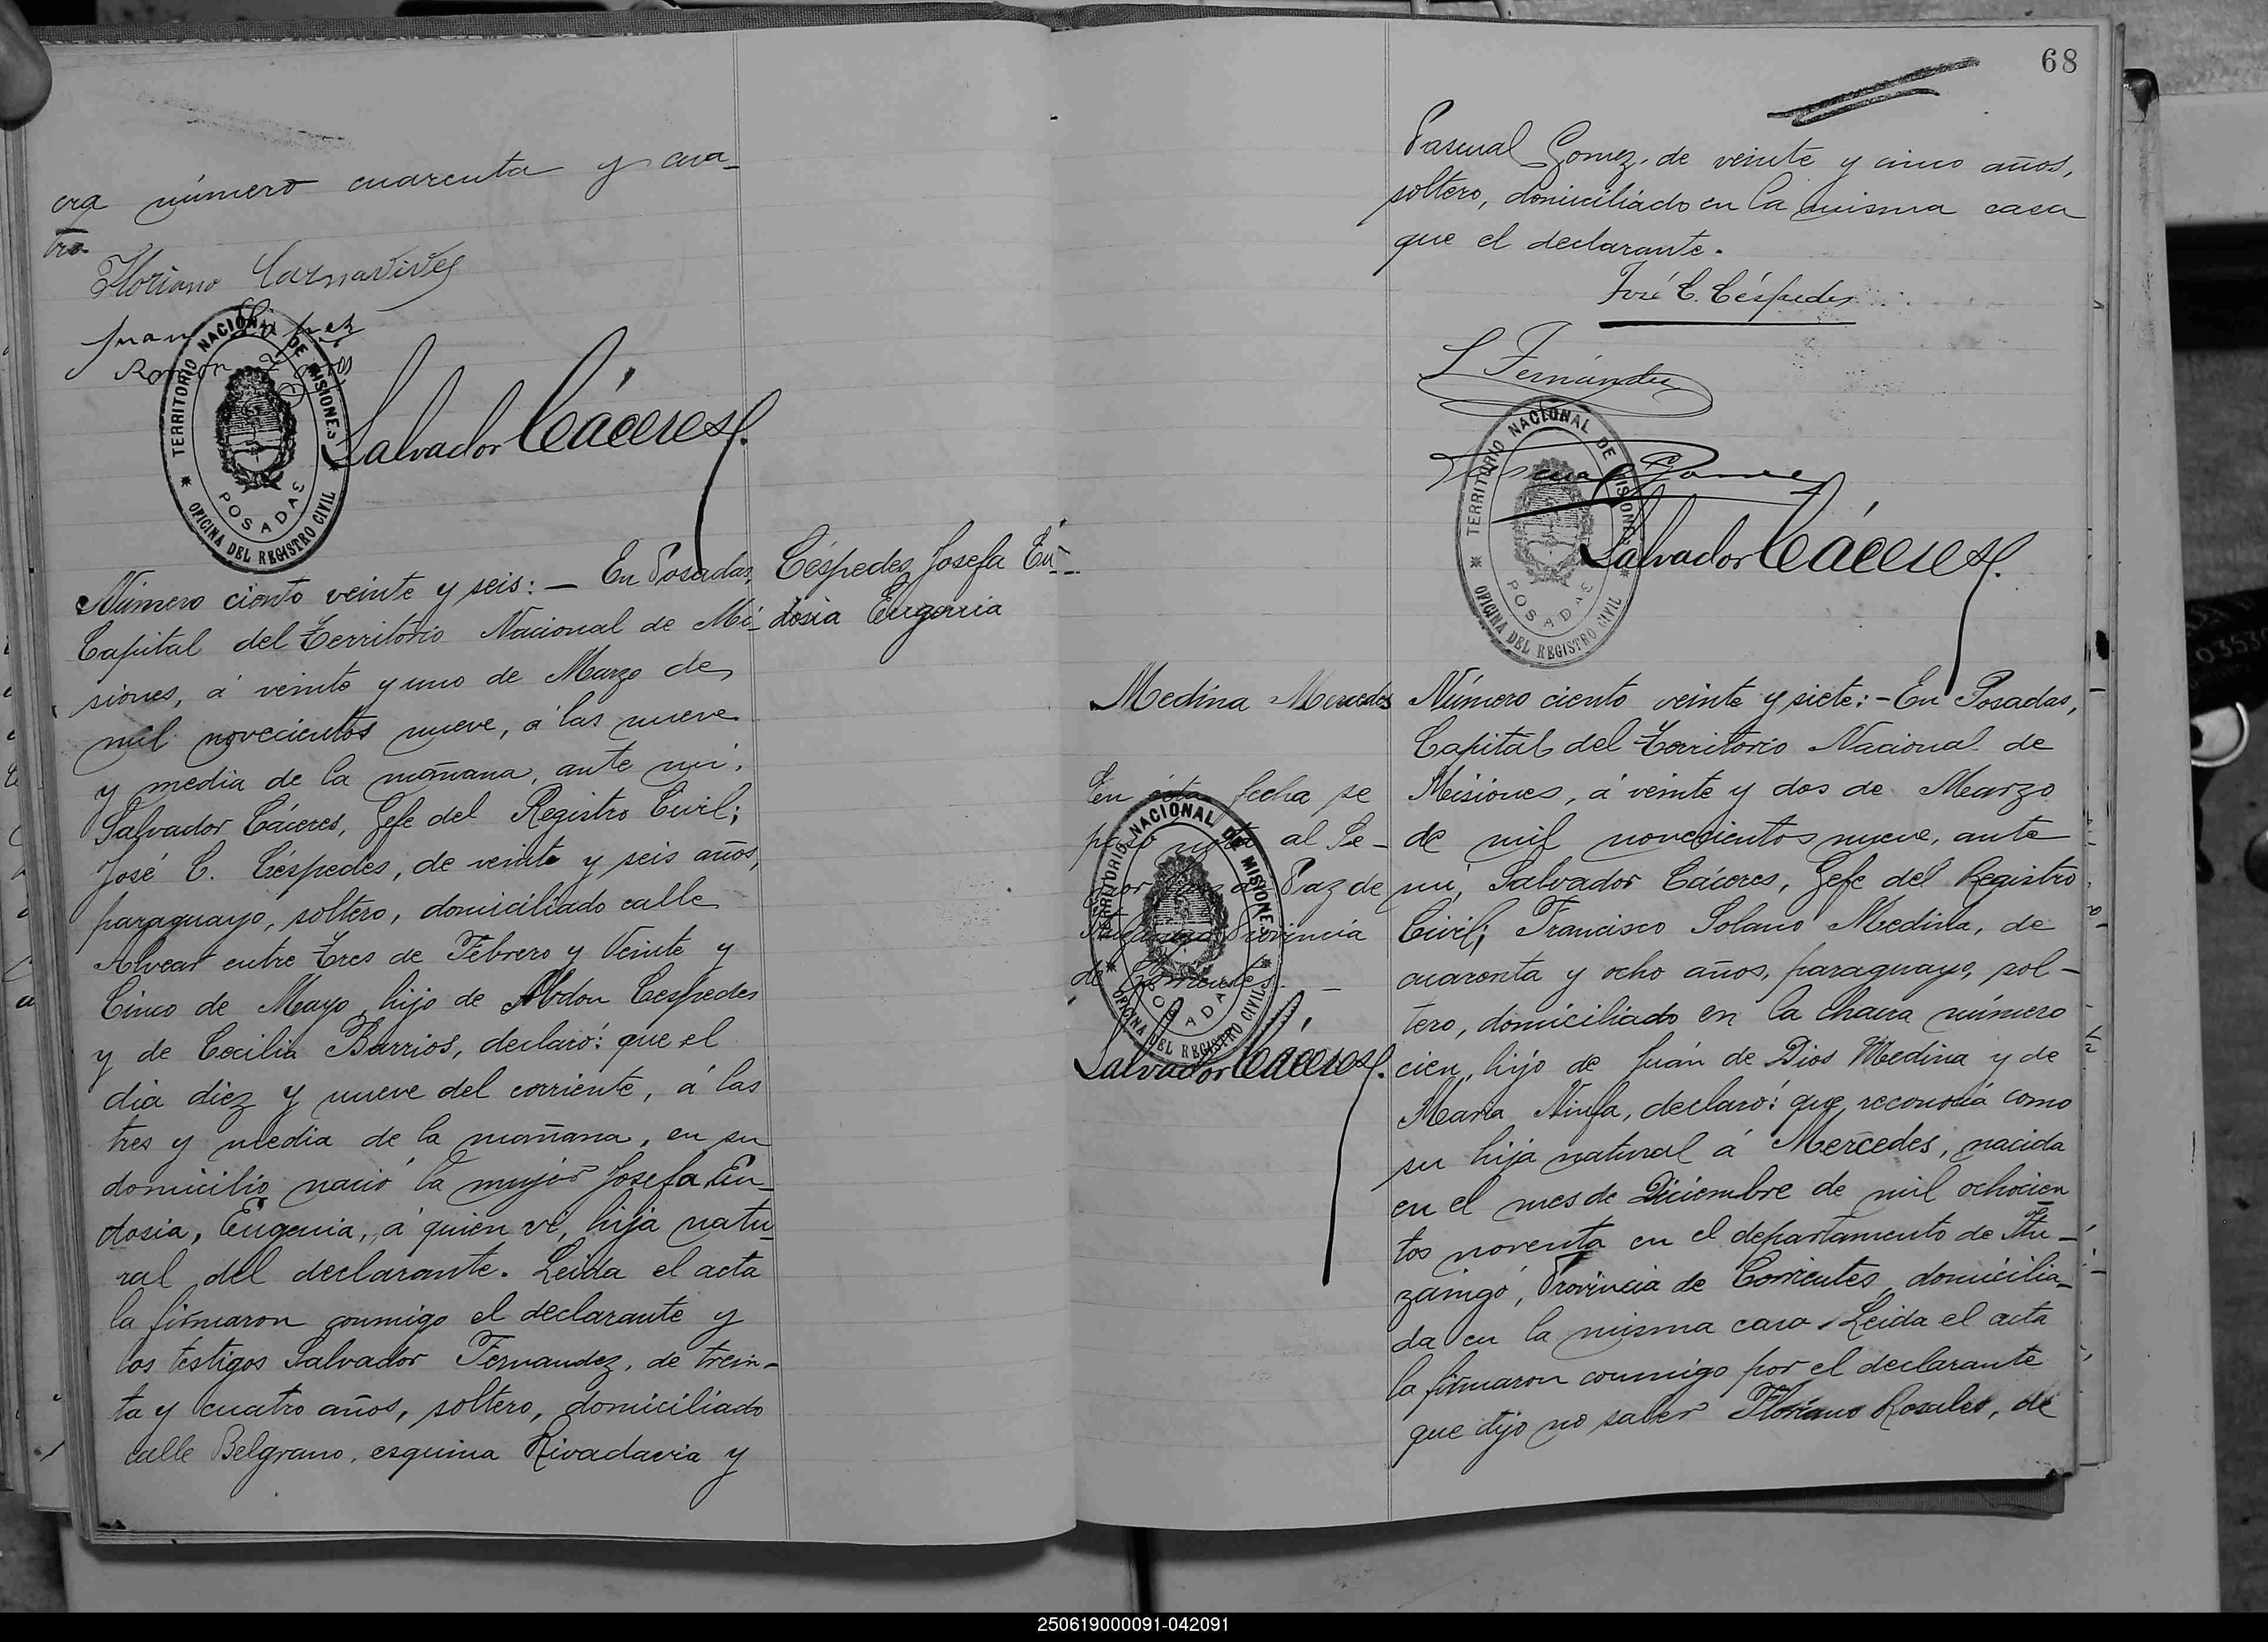 cra número cuarenta y cua-
tro.
Floriano Carnavives
Juan López
Ramon
TERRITORIO NACIONAL DE MISIONES
POSADAS
OFICINA DEL REGISTRO CIVIL
Salvador Cáceres
Número ciento veinte y seis: — En Posadas,
Capital del Territorio Nacional de Mi-
siones, á veinte y uno de Marzo de
mil novecientos nueve, á las nueve
y media de la mañana, ante mí,
Salvador Cáceres, Gefe del Registro Civil;
José C. Céspedes, de veinte y seis años,
paraguayo, soltero, domiciliado calle
Alvear entre Tres de Febrero y Veinte y
Cinco de Mayo, hijo de Abdon Cespedes
y de Cecilia Barrios, declaró: que el
dia diez y nueve del corriente, á las
tres y media de la mañana, en su
domicilio nació la mujer Josefa Eu-
dosia, Eugenia, á quien ví, hija natu-
ral del declarante. Leida el acta
la firmaron conmigo el declarante y
los testigos Salvador Fernandez, de trein-
ta y cuatro años, soltero, domiciliado
calle Belgrano, esquina Rivadavia y
Céspedes Josefa Eu-
dosia Eugenia
68
Pascual Gomez, de veinte y cinco años,
soltero, domiciliado en la misma casa
que el declarante.
José C. Céspedes
S Fernández
Pascual Gomez
TERRITORIO NACIONAL DE MISIONES
POSADAS
OFICINA DEL REGISTRO CIVIL
Salvador Cáceres
Medina Mercedes
En esta fecha se
pasó nota al Se-
ñor Juez de Paz de
Ituzaingo Provincia
de Corrientes. —
TERRITORIO NACIONAL DE MISIONES
POSADAS
OFICINA DEL REGISTRO CIVIL
Salvador Cáceres
Número ciento veinte y siete: — En Posadas,
Capital del Territorio Nacional de
Misiones, á veinte y dos de Marzo
de mil novecientos nueve, ante
mí, Salvador Cáceres, Gefe del Registro
Civil; Francisco Solano Medina, de
cuarenta y ocho años, paraguayo, sol-
tero, domiciliado en la chacra número
cien, hijo de Juán de Dios Medina y de
Maria Ninfa, declaró: que reconocía como
su hija natural á Mercedes, nacida
en el mes de Diciembre de mil ochocien
tos noventa en el departamento de Itu-
zaingó, Provincia de Corrientes, domicilia-
da en la misma casa. Leida el acta
la firmaron conmigo por el declarante
que dijo no saber Floriano Rosales, de
250619000091-042091